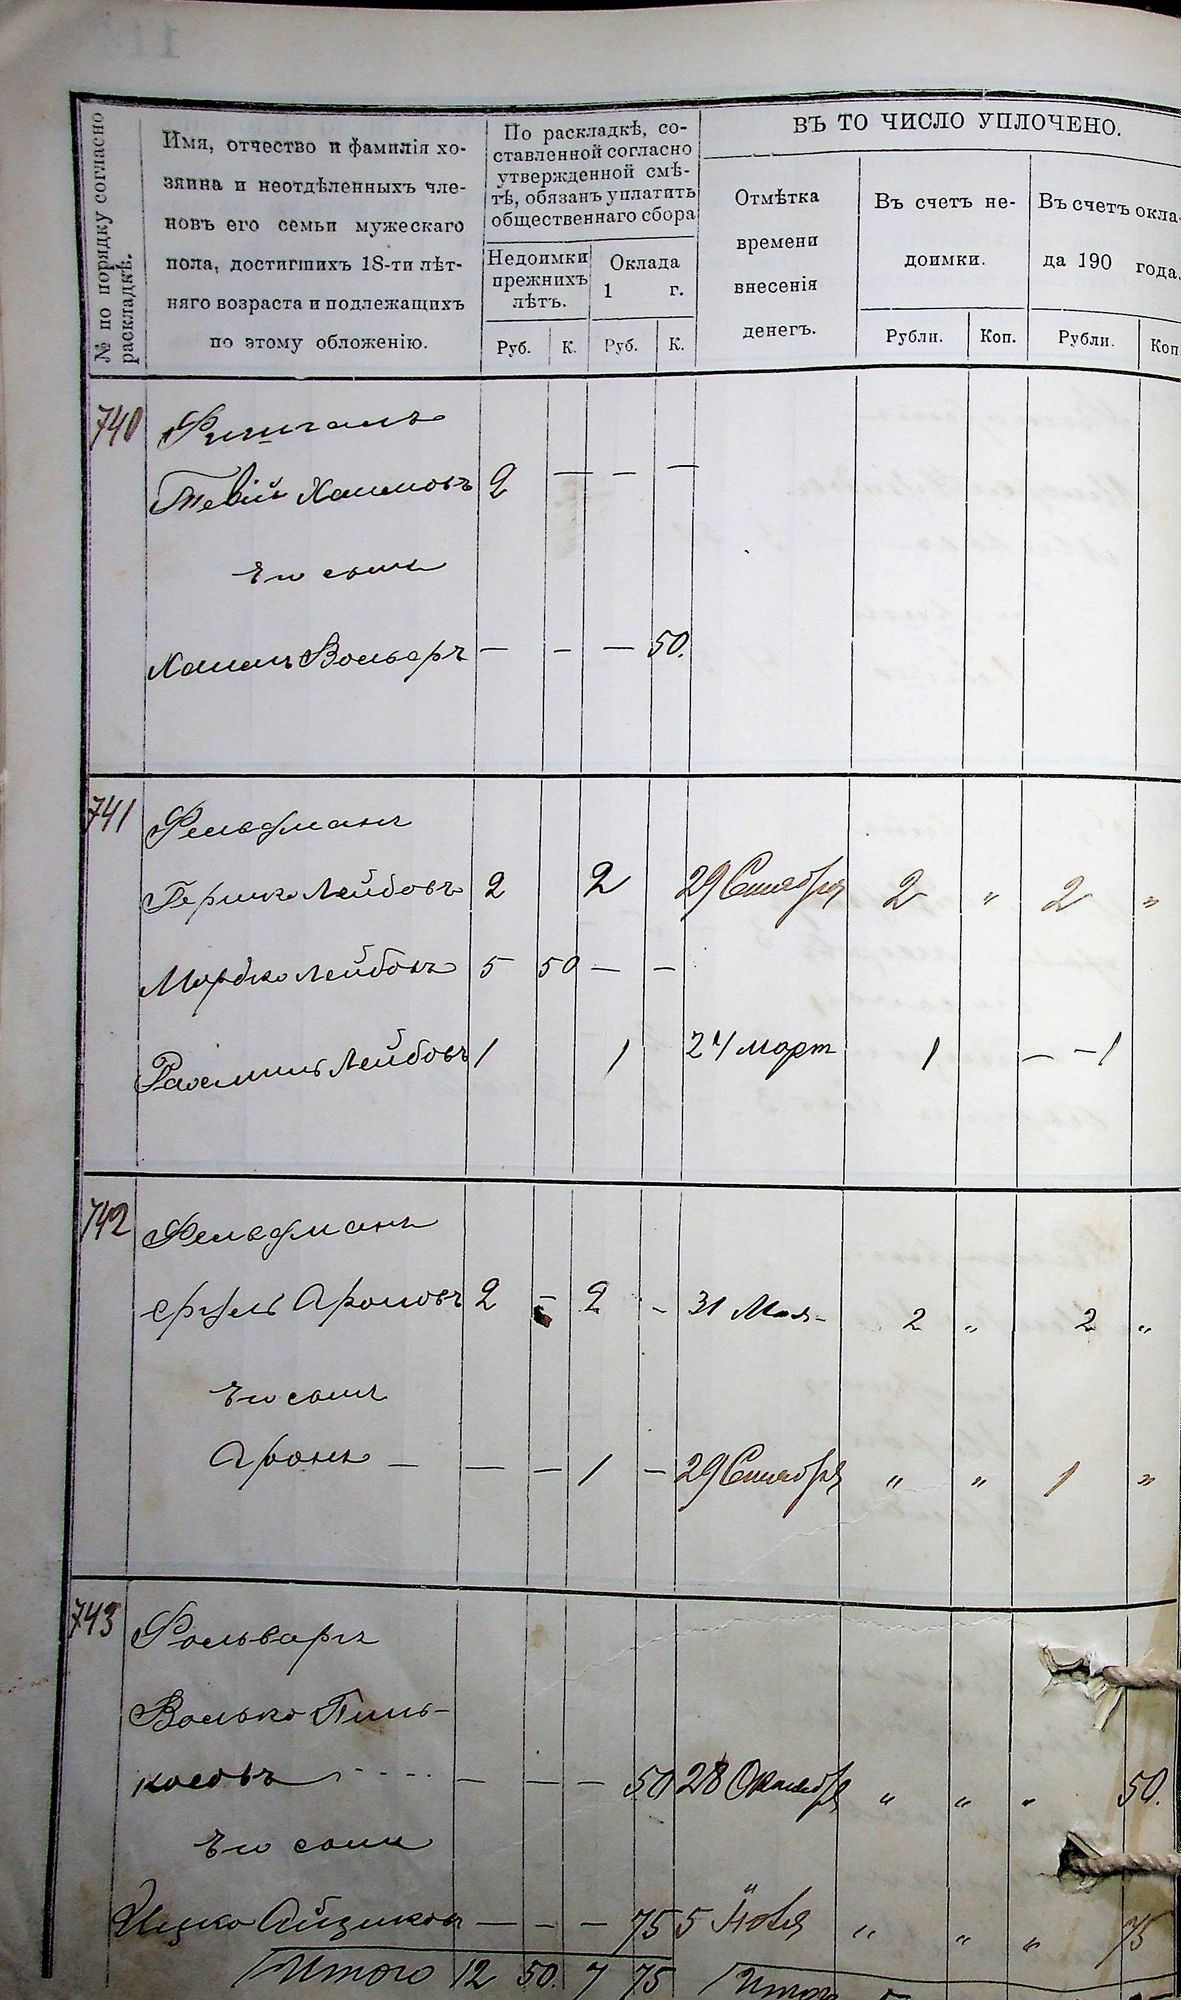 № по порядку согласно
раскладкѣ.
Имя, отчество и фамилія хо-
зяина и неотдѣленныхъ чле-
новъ его семьи мужескаго
пола, достигшихъ 18-ти лѣт-
няго возраста и подлежащихъ
по этому обложенію.
По раскладкѣ, со-
ставленной согласно
утвержденной смѣ-
тѣ, обязанъ уплатить
общественнаго сбора
Недоимки
прежнихъ
лѣтъ.
Оклада
1 г.
Руб. К. Руб. К.
ВЪ ТО ЧИСЛО УПЛОЧЕНО.
Отмѣтка
времени
внесенія
денегъ.
Въ счетъ не-
доимки.
Въ счетъ окла-
да 190 года.
Рубли. Коп. Рубли. Коп
740
Тевій Хаимовъ 2 — — —
Его сынъ
— — — 50.
741 Фельдманъ
Гершко Лейбовъ 2 2 29 Сентября 2 " 2 "
Мордко Лейбовъ 5 50 — —
Лейбовъ 1 1 24 март 1 — — 1
742 Фельдманъ
Сруль Ароновъ 2 — 2 - 31 Мая - 2 " 2 "
Его сынъ
Аронъ — — — 1 — 29 Сентября " " 1 "
743 Фольварг
Волько Пинь-
косовъ — — — 50 28 Октября " " " 50.
Его сыни
Ицко Айзиков — — — 75 5 " " " 75
Итого 12 50. 7 75 Итого